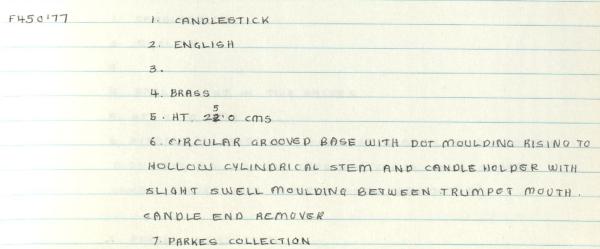 F450'77 1. CANDLESTICK
2. ENGLISH
3.
4. BRASS
5. HT. 25.0 cms
6. CIRCULAR GROOVED BASE WITH DOT MOULDING RISING TO
HOLLOW CYLINDRICAL STEM AND CANDLE HOLDER WITH
SLIGHT SWELL MOULDING BETWEEN TRUMPET MOUTH.
CANDLE END REMOVER
7. PARKES COLLECTION